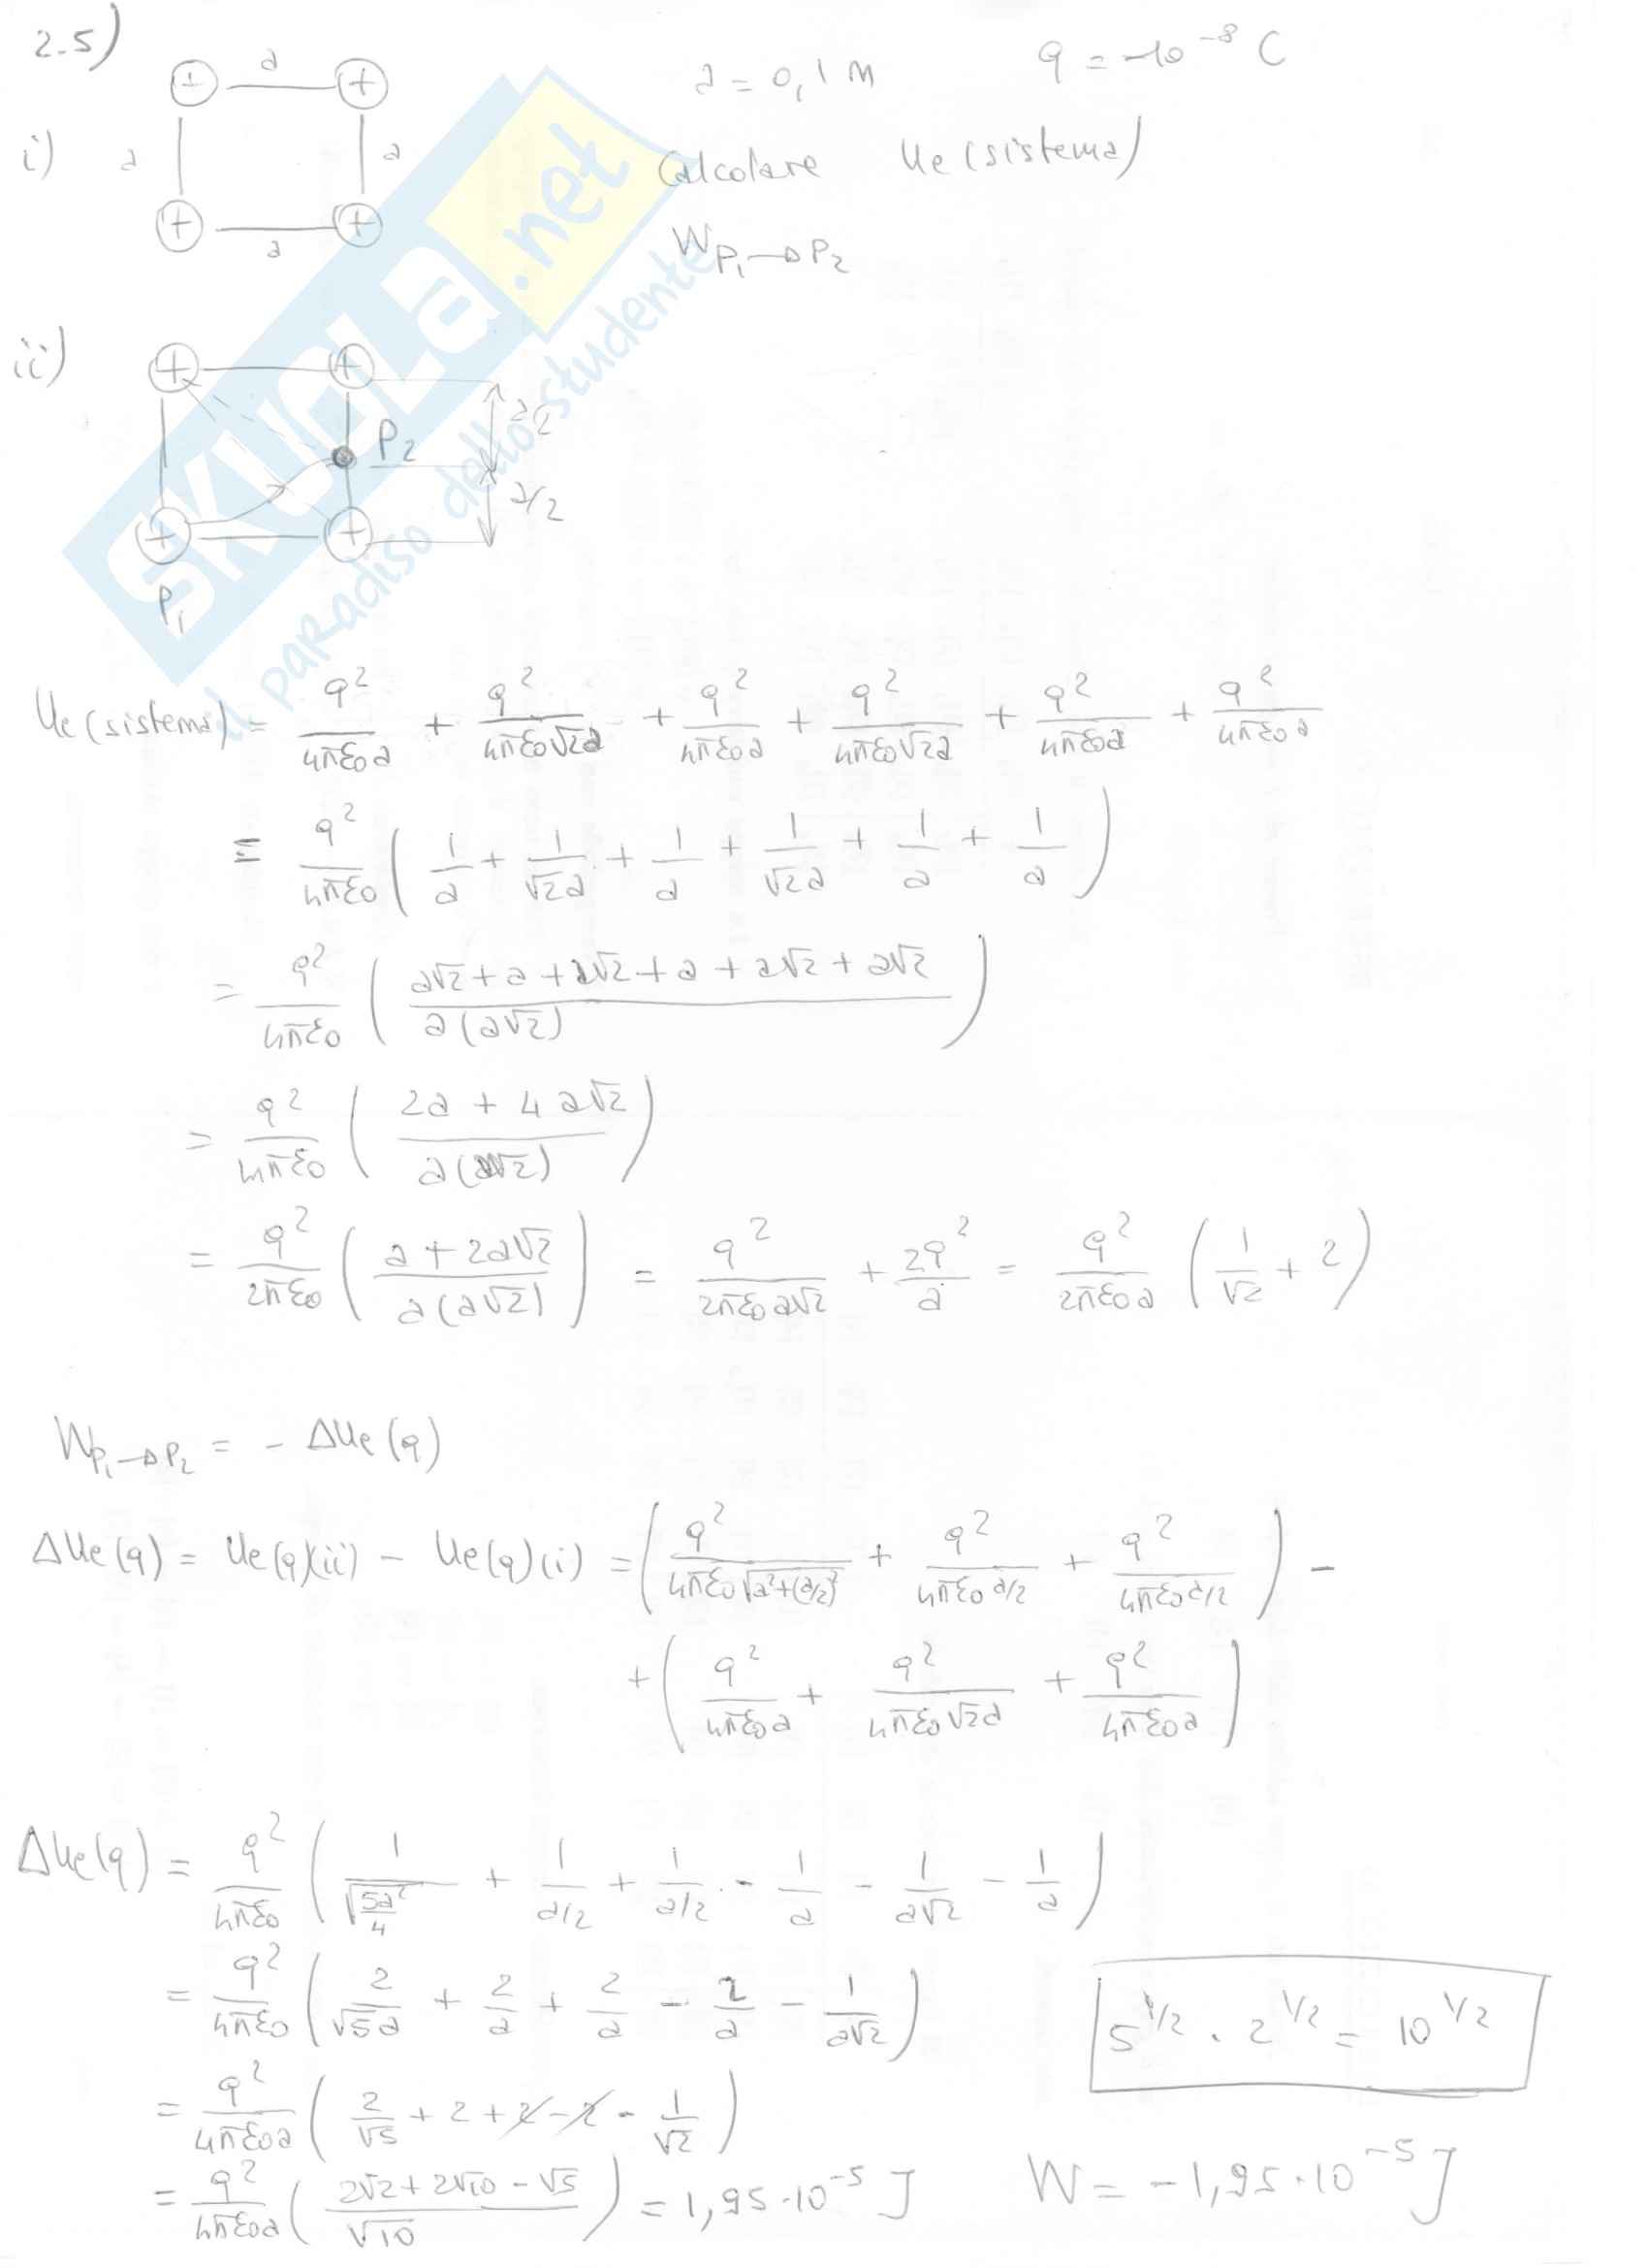 2.5)
a = 0,1 m
q = 10⁻⁸ C
i)
a
a
a
a
Calcolare Ue (sistema)
W P₁→P₂
ii)
P₂
a/2
a/2
P₁
SKUOLA.net
il paradiso dello studente
Ue (sistema) = q²/(4πε₀a) + q²/(4πε₀√2a) + q²/(4πε₀a) + q²/(4πε₀√2a) + q²/(4πε₀a) + q²/(4πε₀a)
= q²/(4πε₀) (1/a + 1/(√2a) + 1/a + 1/(√2a) + 1/a + 1/a)
= q²/(4πε₀) ((a√2 + a + a√2 + a + a√2 + a√2)/(a(a√2)))
= q²/(4πε₀) ((2a + 4a√2)/(a(a√2)))
= q²/(2πε₀) ((a + 2a√2)/(a(a√2))) = q²/(2πε₀a√2) + 2q²/a = q²/(2πε₀a) (1/√2 + 2)
W P₁→P₂ = - ΔUe(q)
ΔUe(q) = Ue(q)(ii) - Ue(q)(i) = (q²/(4πε₀√(a²+(a/2)²)) + q²/(4πε₀a/2) + q²/(4πε₀a/2)) -
+ (q²/(4πε₀a) + q²/(4πε₀√2a) + q²/(4πε₀a))
ΔUe(q) = q²/(4πε₀) (1/√(5a²/4) + 1/(a/2) + 1/(a/2) - 1/a - 1/(a√2) - 1/a)
= q²/(4πε₀) (2/(√5a) + 2/a + 2/a - 2/a - 1/(a√2))
5^1/2 · 2^1/2 = 10^1/2
= q²/(4πε₀a) (2/√5 + 2 + 2 - 2 - 1/√2)
= q²/(4πε₀a) ((2√2 + 2√10 - √5)/√10) = 1,95·10⁻⁵ J
W = -1,95·10⁻⁵ J